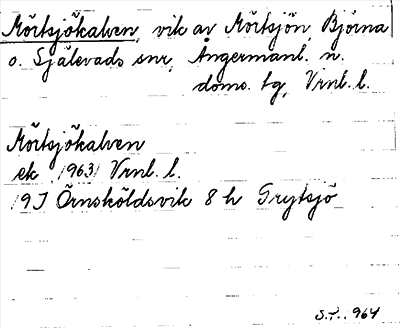 Mörtsjökalven, vik av Mörtsjön, Björna
o. Själevads snr, Ångermanl. n.
doms. tg, Vrnl. l.
Mörtsjökalven
ek /1963/ Vrnl. l.
19J Örnsköldsvik 8 h Grytsjö
S.T. 964